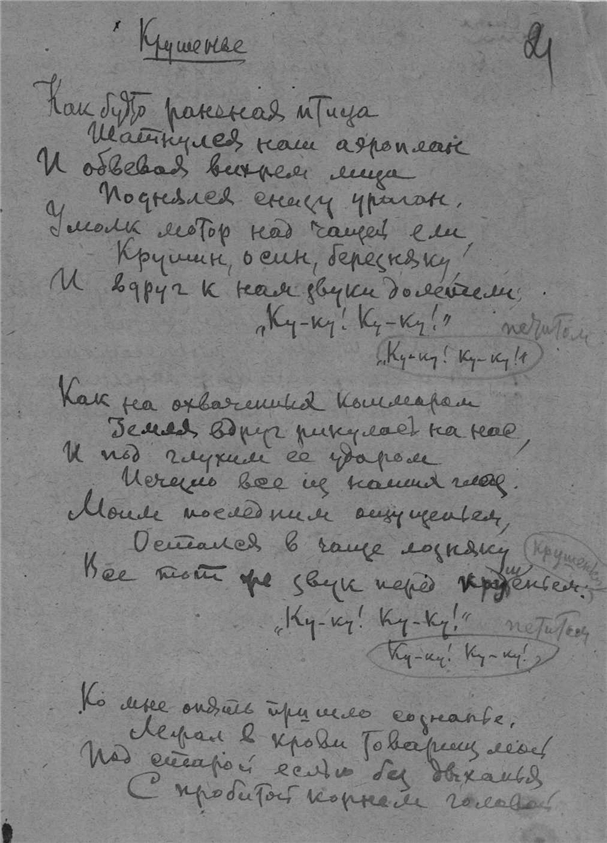 Крушенье
21
Как будто раненая птица
Шатнулся наш аэроплан
И обвевая вихрем лица
Поднялся снизу ураган.
Умолк мотор над чащей ели,
Крушин, осин, березняку!
И вдруг к нам звуки долетели:
"Ку-ку! Ку-ку!"
петитом
"Ку-ку! Ку-ку!"
Как на охваченных кошмаром
Земля вдруг ринулась на нас,
И под глухим ее ударом
Исчезло все из наших глаз.
Моим последним ощущеньем,
Остался в чаще лозняку
крушеньем
Все тот же звук перед крушеньем:
"Ку-ку! Ку-ку!"
петитом
Ку-ку! Ку-ку!"
Ко мне опять пришло сознанье.
Лежал в крови товарищ мой
Под старой елью без дыханья
С пробитой корнем головой